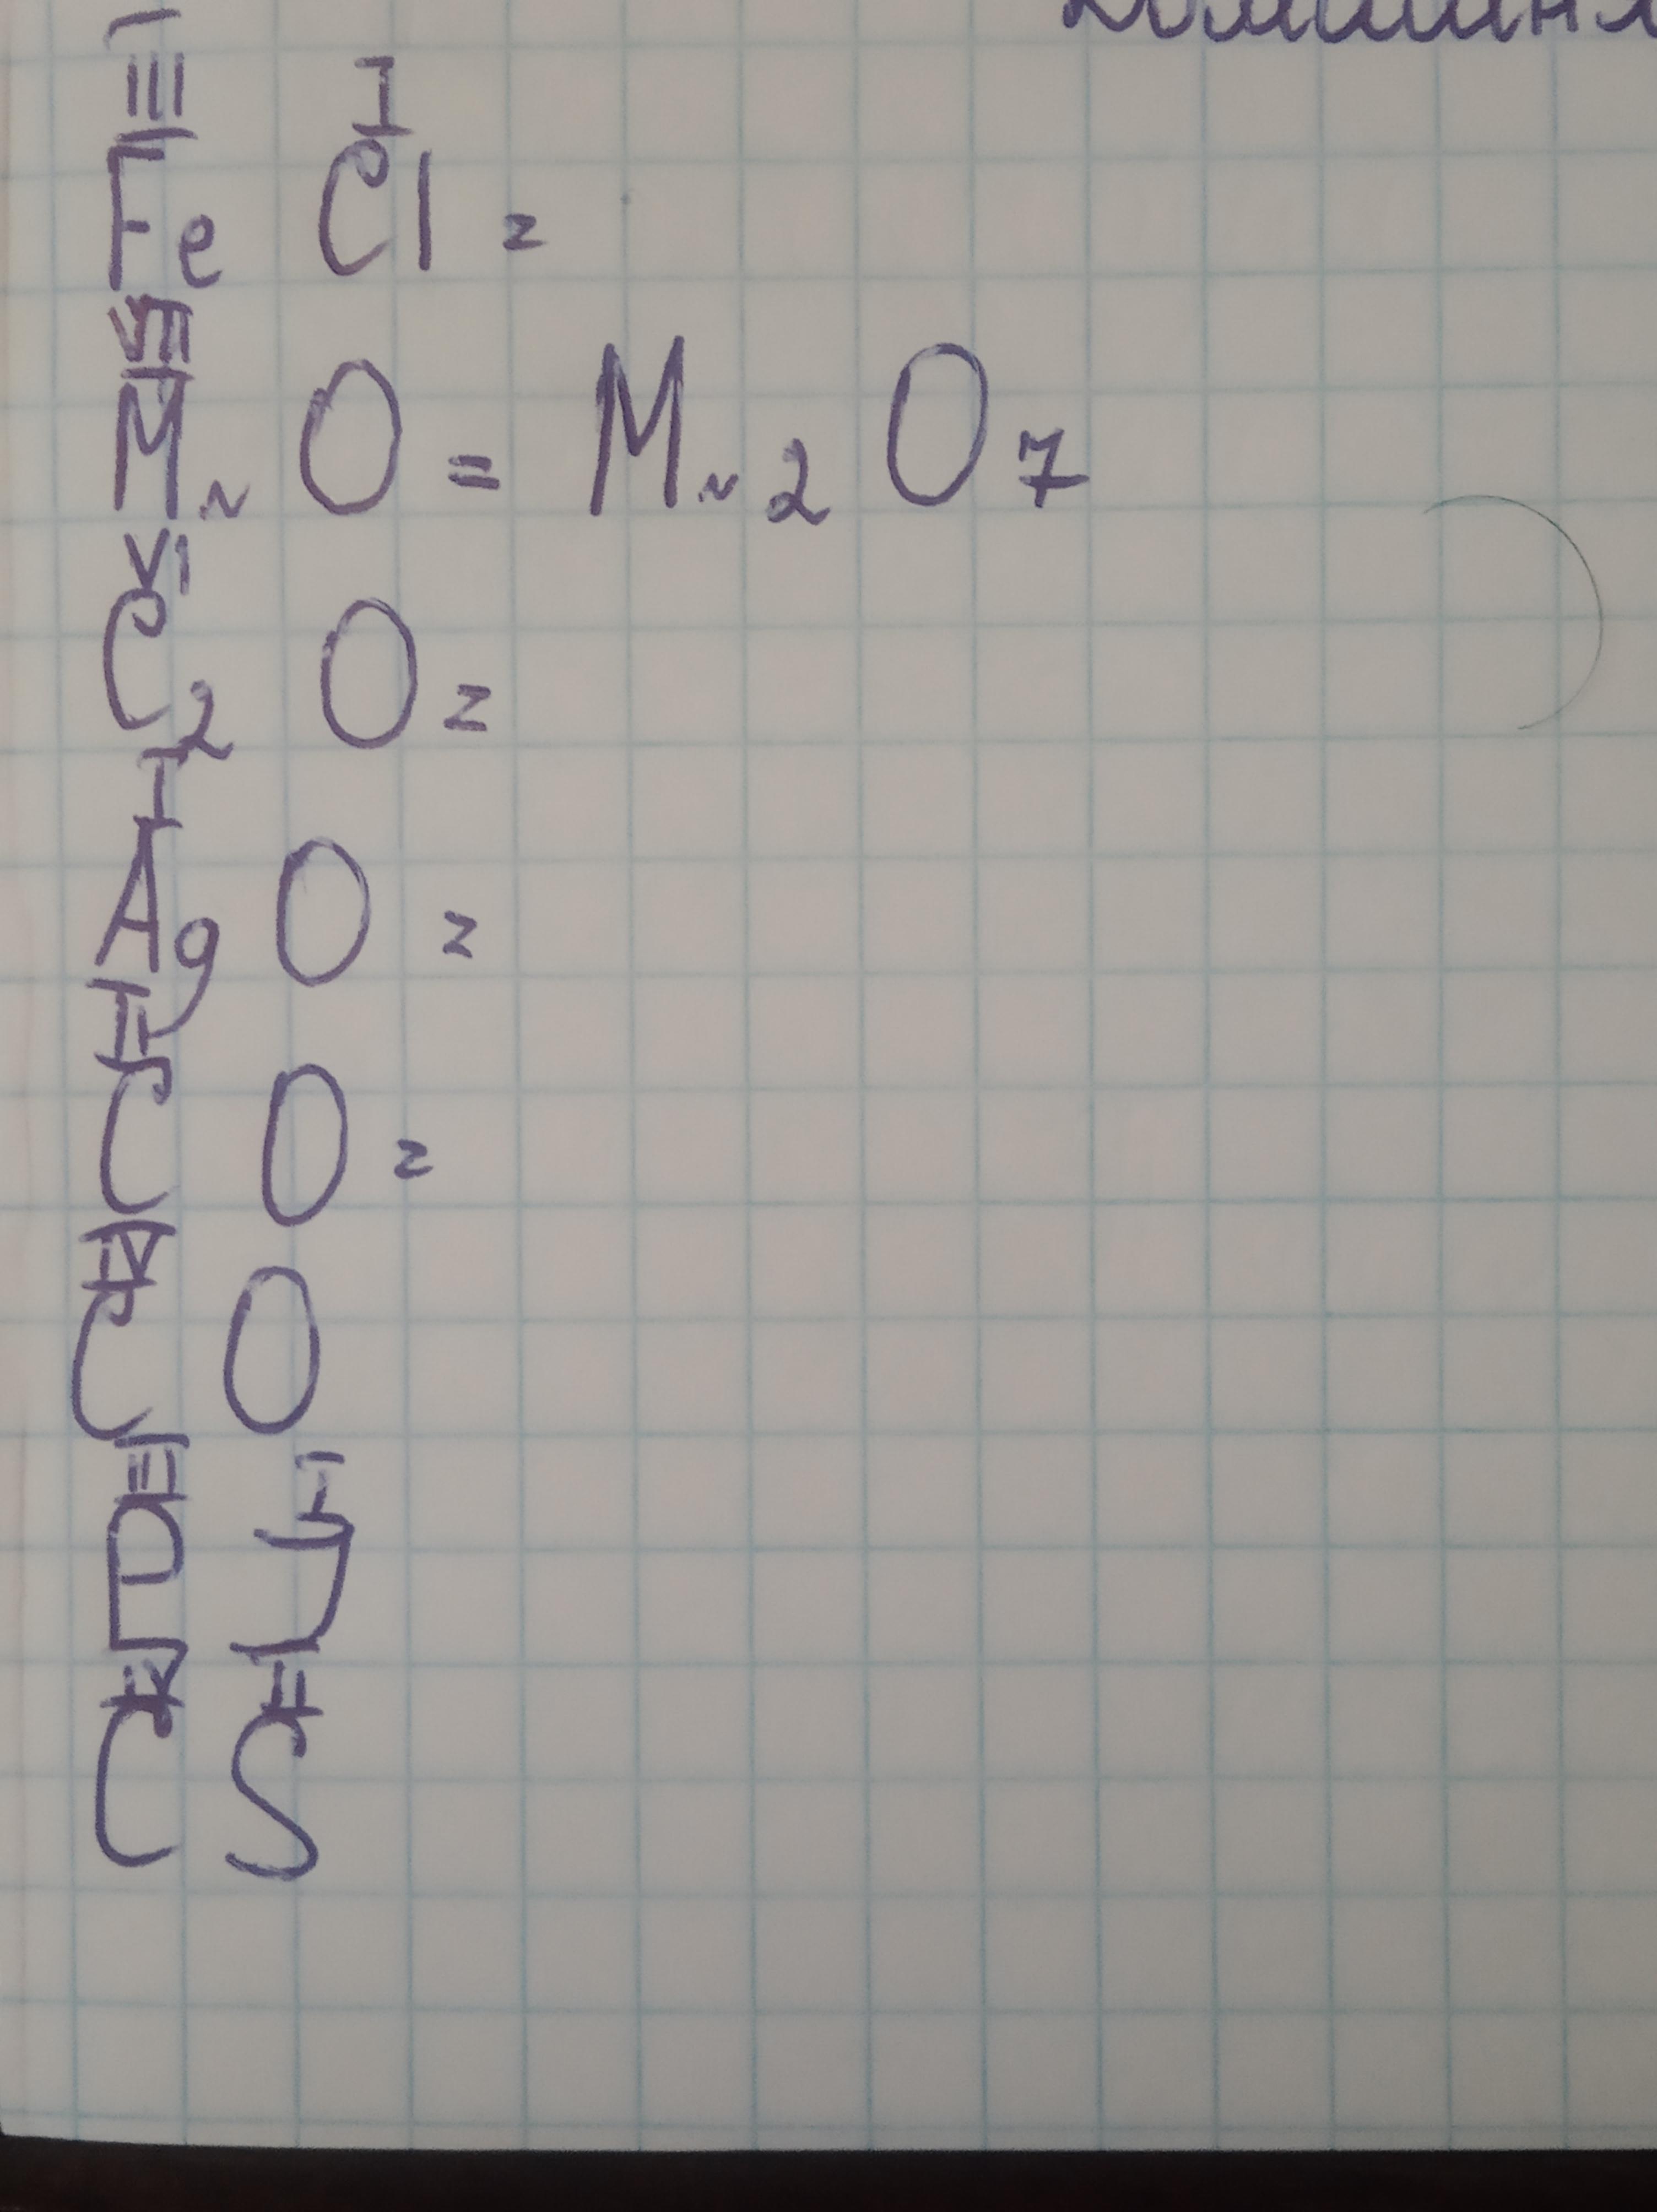 III I
Fe Cl =
VII
Mn O = Mn2O7
VI
C2 O =
I
Ag O =
II
C O =
IV
C O
III I
P J
IV II
C S